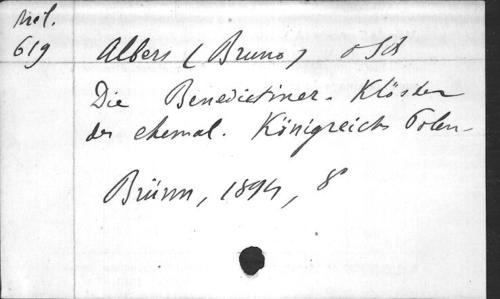 Mél.
619
Albers (Bruno) OSB
Die Benedictiner-Klöster
des ehemal. Königreichs Polen-
Brünn, 1894, 8°